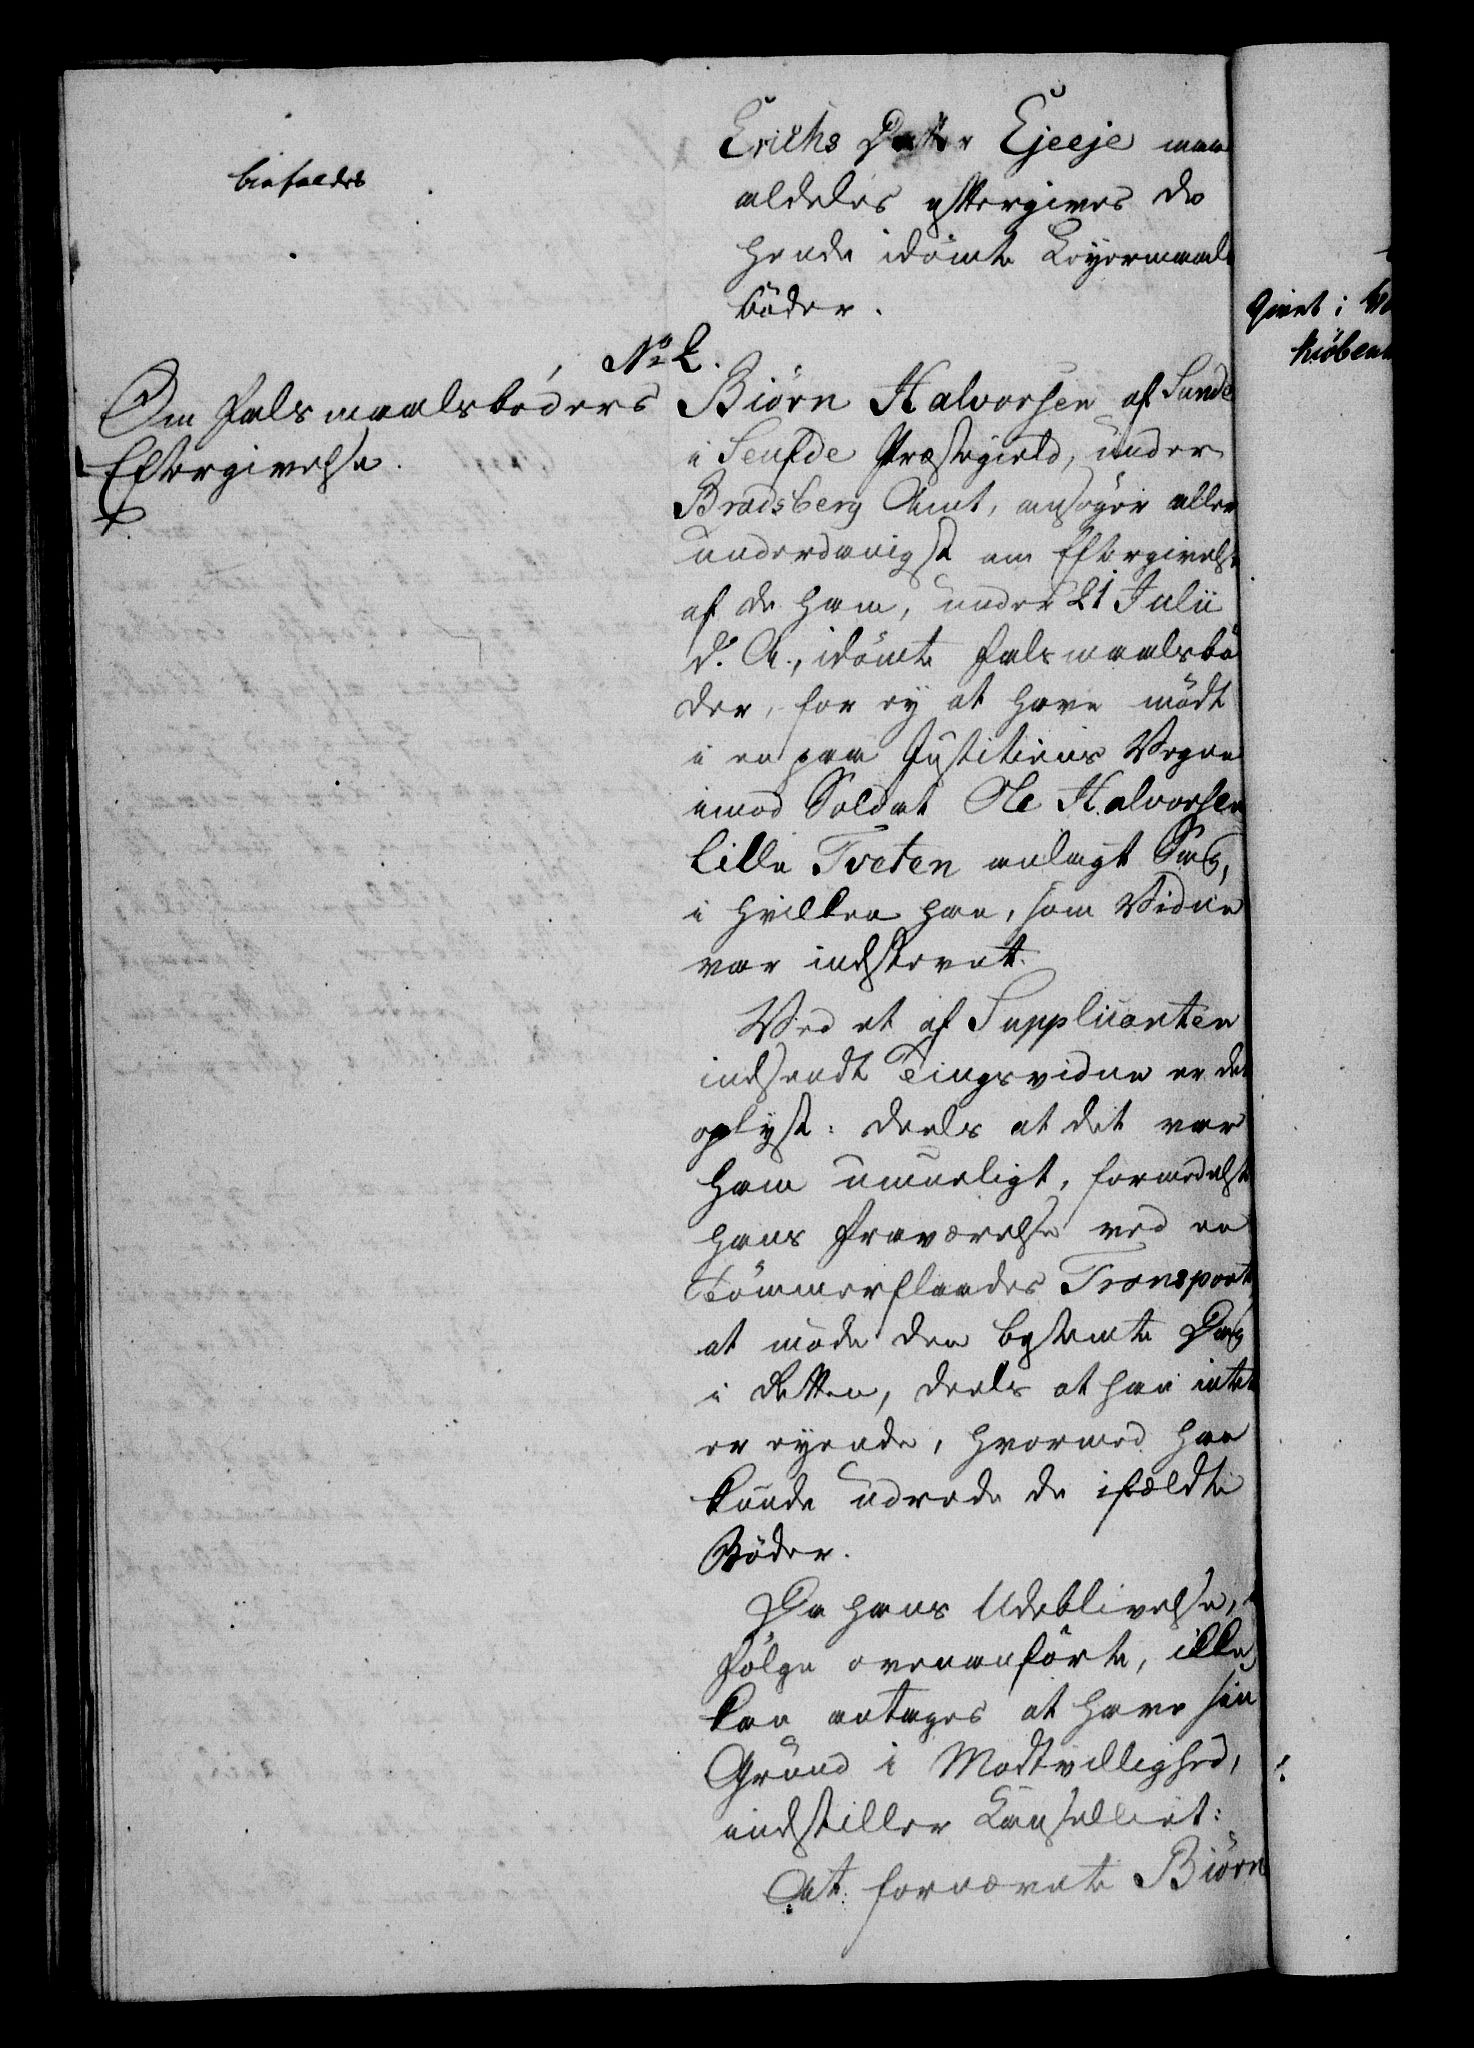 Erichs Datter Ejeeje maa
aldeles eftergives de
hende idömte Leyermaals
böder.
biefaldes
No 2.
Om Falsmaalsböders
Eftergivelse.
Biörn Halvorsen af Sunde
i Seufde Præstegield, under
Bradsberg Amt, ansöger aller
underdanigst om Eftergivelse
af de ham, under 21 Julii
d. A., idömte Falsmaalsbö
der, for ey at have mödt
i en paa Justitiens Vegne
imod Soldat Ole Halvorsen
lille Tveten anlagt Sag,
i hvilken han, som Vidne
var indstevnet.
Ved et af Supplicanten
indsendt Tingsvidne er det
oplyst: deels at det var
ham umueligt, formedelst
hans Fraværelse ved en
Tömmerflaades Transport,
at möde den bestemte Dag
i Retten, deels at han intet
er eyende, hvormed han
kunde udrede de ifældte
Böder.
Da hans Udeblivelse,
fölge ovenanförte, ikke
kan antages at have sin
Grund i Modtvillighed,
indstiller Cancelliet:
At fornævnte Biörn
Givet i
Kiöben